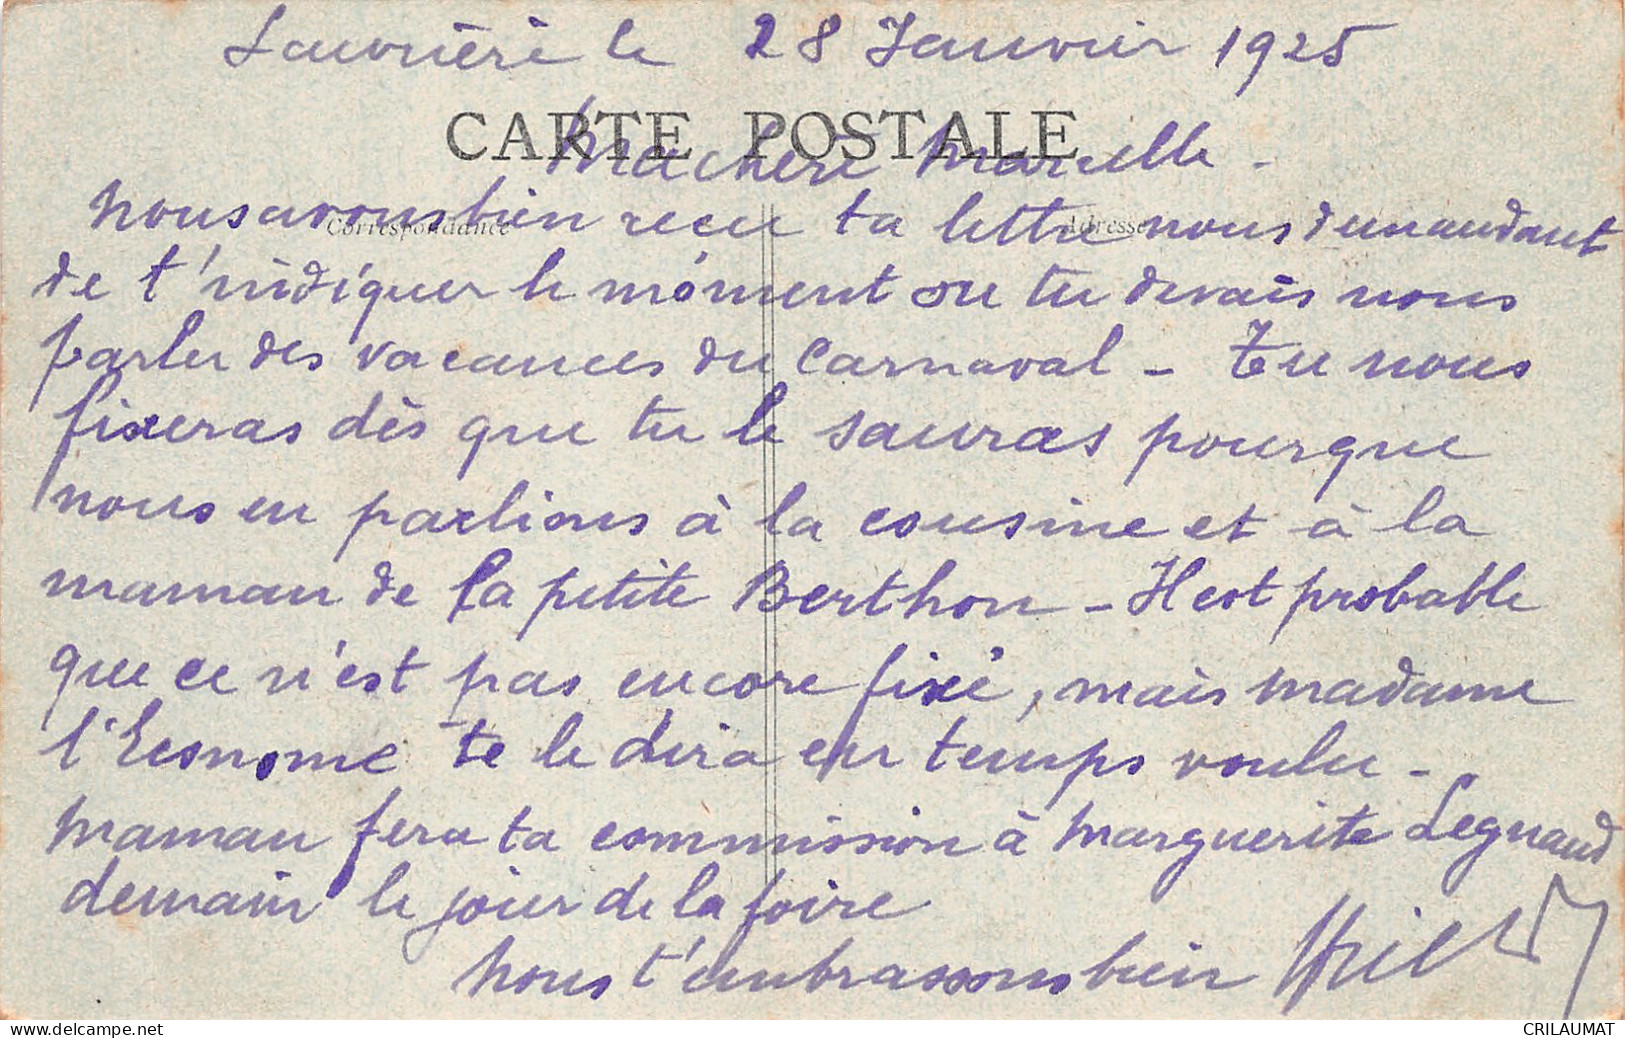 Laurière le 28 Janvier 1925
CARTE POSTALE
Ma chère Marcelle -
Correspondance
Adresse
nous avons bien reçu ta lettre nous demandant
de t'indiquer le moment ou tu devais nous
parler des vacances du Carnaval - Tu nous
fixeras dès que tu le sauras pourque
nous en parlions à la cousine et à la
maman de la petite Berthon - Il est probable
que ce n'est pas encore fixé, mais madame
l'Econome te le dira en temps voulu -
maman fera ta commission à Marguerite Legnaud
demain le jour de la foire
nous t'embrassons bien
CRILAUMAT